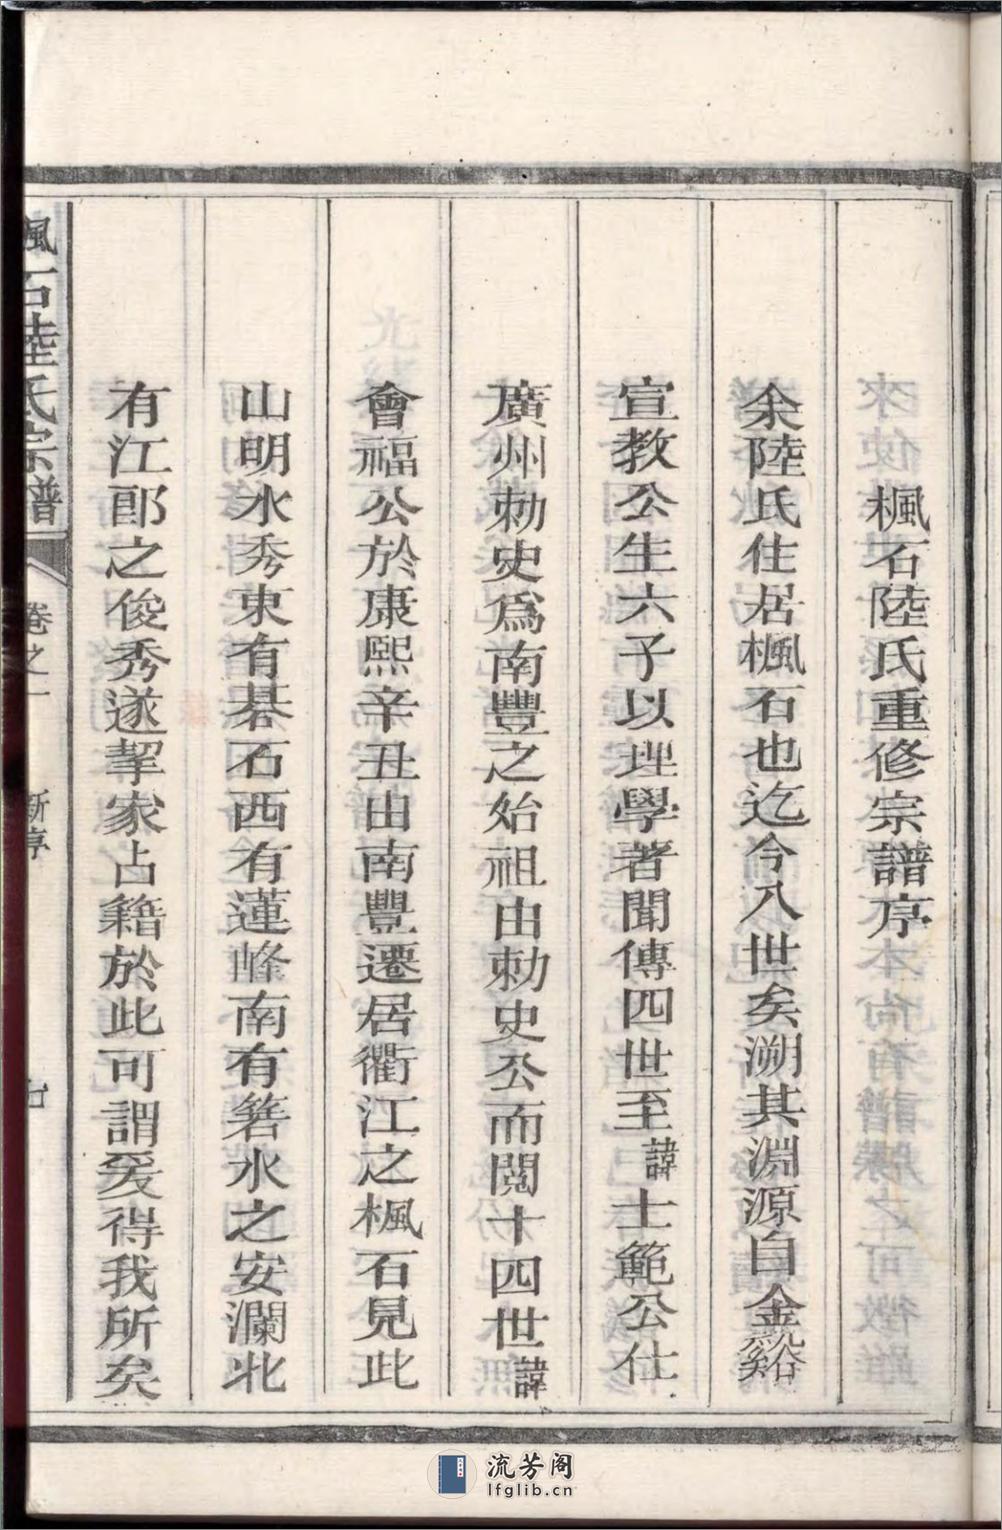 楓石陸氏重修宗譜序
余陸氏住居楓石也迄今八世矣溯其淵源自金谿
宣教公生六子以理學著聞傳四世至諱士範公仕
廣州勅史爲南豐之始祖由勅史公而閱十四世諱
會福公於康熙辛丑由南豐遷居衢江之楓石見此
山明水秀東有碁石西有蓮峰南有箬水之安瀾北
有江郎之俊秀遂挈家占籍於此可謂爰得我所矣
楓石陸氏宗譜
卷之一
新序
七
流芳阁
lfglib.cn